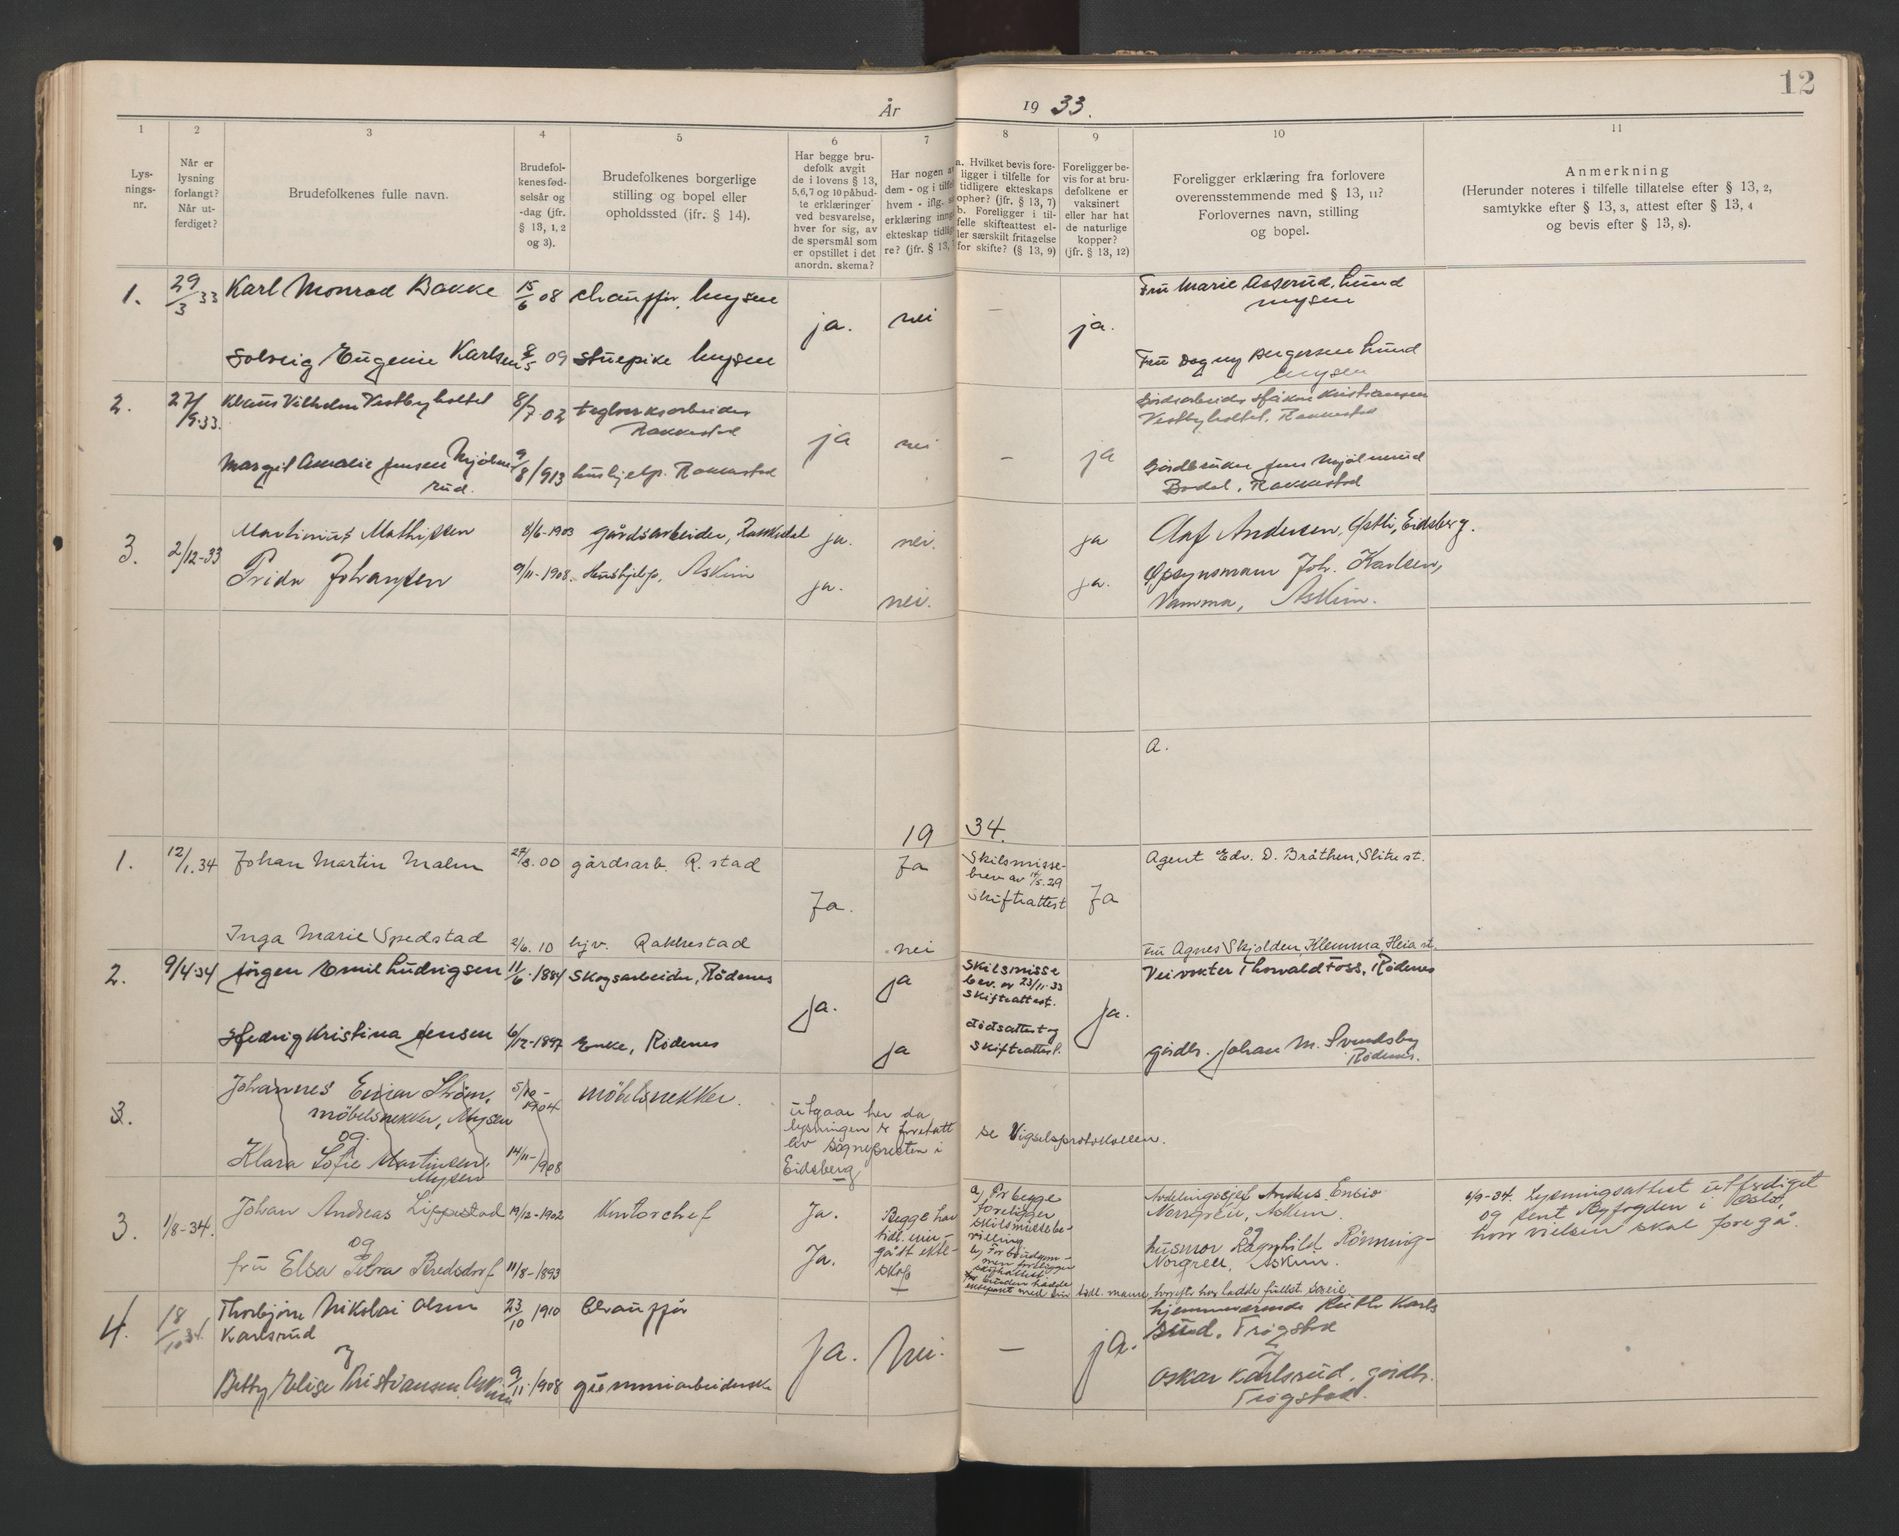 12
År 1933.
1 2 3 4 5 6 7 8 9 10 11
Lys-
nings-
nr.
Når er
lysning
forlangt?
Når ut-
ferdiget?
Brudefolkenes fulle navn.
Brudefol-
kenes fød-
selsår og
-dag (jfr.
§ 13, 1, 2
og 3).
Brudefolkenes borgerlige
stilling og bopel eller
opholdssted (ifr. § 14).
Har begge bru-
defolk avgit
de i lovens § 13,
5,6,7 og 10 påbud-
te erklæringer
ved besvarelse,
hver for sig, av
de spørsmål som
er opstillet i det
anordn. skema?
Har nogen av
dem - og i tilfel
hvem - iflg.
erklæring inng
ekteskap tidlig
re? (jfr. § 13,
a. Hvilket bevis fore-
ligger i tilfelle for
tidligere ekteskaps
ophør? (jfr. § 13, 7)
b. Foreligger i til-
felle skifteattest el-
ler særskilt fritagelse
for skifte? (§ 13, 9)
Foreligger be-
vis for at bru-
defolkene er
vaksinert
eller har hat
de naturlige
kopper?
(jfr. § 13, 12)
Foreligger erklæring fra forlovere
overensstemmende med § 13, 11?
Forlovernes navn, stilling
og bopel.
Anmerkning
(Herunder noteres i tilfelle tillatelse efter § 13, 2,
samtykke efter § 13, 3, attest efter § 13, 4
og bevis efter § 13, 8).
1. 29/3 33 Karl Monrad Bakke 15/6 08 chauffør, Mysen ja. nei – ja. Fru Marie Aaserud, Lund
Mysen
Solveig Eugenie Karlsen 8/5 09 stuepike Mysen Fru Dagny Lund
Mysen
2. 27/9.33. Klaus Vilhelm Vestbyholtet 8/7 02 teglverksarbeider
Rakkestad ja nei – ja Gårdsarbeider Håkon Kristiansen
Vestbyholtet, Rakkestad
Margit Amalie Jensen Mjølne
rud. 9/8/913 hushjelp. Rakkestad Gårdbruker Jens Mjølnerud
Bodal, Rakkestad
3. 2/12-33 Martinius Mathissen 8/6-1903 gårdsarbeider, Rakkestad ja. nei. ja Olaf Andersen, Østli, Eidsberg.
Frida Johansen 9/11-1908. Hushjelp, Askim ja. nei. ja. Opsynsmann Joh. Karlsen,
Vamma, Askim.
a.
1934.
1. 12/1.34 Johan Martin Malm 27/8.00 gårdsarb. R.stad Ja. Ja Skilsmisse-
brev av 14/5.29
Skifteattest Ja Agent Edv. D. Bråthen, Slitu st.
Inga Marie Spedstad 2/6.10 hjv. Rakkestad nei fru Agnes Skjolden, Klemma, Heia st.
2. 9/4.34 Jørgen Emil Ludvigsen 11/6.1884 Skogsarbeider, Rødenes ja. ja Skilsmisse
bev. av 23/11.33
Skifteattest. ja. Veivokter Thorvald Foss, Rødenes
Hedvig Kristina Jensen 6/12-1897 Enke, Rødenes ja dødsattest og
skifteattest. gårdbr. Johan M. Svendsby
Rødenes.
3. Johannes Einar Strøm, 5/10-1904 møbelsnekker.
møbelsnekker, Mysen
og
Klara Sofie Martinsen, 14/11-1908
Mysen
utgaar her da
lysningen er foretatt
av sognepresten i
Eidsberg
se Vigselsprotokollen.
3. 1/8-34. Johan Andreas Lippestad 19/12-1902 Kontorchef Ja.
og
fru Elsa Petra Bredsdorf 11/8-1893 Ja.
Begge har
tidl. inn-
gått ekte-
skap
a) For begge
foreligger
skilsmissebe-
villing
b) For brudgom-
men foreligger
skifteattest.
bruden hadde
med sin tidl. mann, hvorefter han hadde fullst. særeie
Avdelingssjef Anders Ensio
Norrgren, Askim.
og
husmor Ragnhild Rønning-
Norgren, Askim.
6/9-34. Lysningsattest utferdiget
og sendt Byfogden i Oslo,
hvor vielsen skal foregå.
4. 18/10 34. Thorbjørn Nikolai Olsen 23/10 1910 Chauffør ja. Nei. – ja. hjemmeværende Ruth Karls
Karlsrud rud, Trøgstad
Betty Elise Kristiansen, Askim 9/11.1908 gummiarbeiderske Oskar Karlsrud, gårdbr.
Trøgstad.